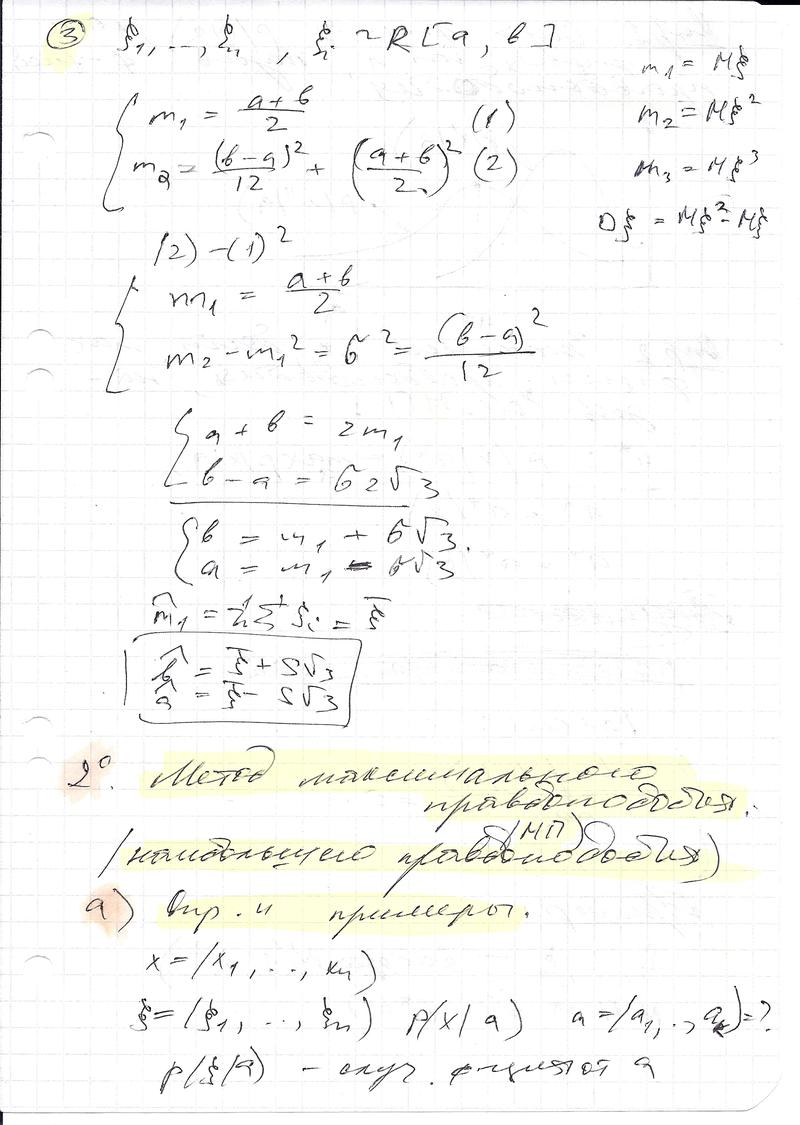 ③ ξ₁, ..., ξₙ , ξᵢ ~ R [a, b]
m₁ = Mξ
m₂ = Mξ²
m₃ = Mξ³
Dξ = Mξ² - Mξ
m₁ = (a+b)/2 (1)
m₂ = (b-a)²/12 + ((a+b)/2)² (2)
(2) - (1)²
m₁ = (a+b)/2
m₂ - m₁² = σ² = (b-a)²/12
a + b = 2m₁
b - a = σ2√3
b = m₁ + σ√3.
a = m₁ - σ√3
m̂₁ = 1/n Σ ξᵢ = ξ̄
b̂ = ξ̄ + S√3
â = ξ̄ - S√3
2°. Метод максимального
правдоподобия.
(МП)
(наибольшего правдоподобия)
а) Опр. и примеры.
x = (x₁, ..., xₙ)
ξ = (ξ₁, ..., ξₙ) p(x|a) a = (a₁, .., aₖ) = ?
p(ξ|a) - случ. ф-ция от a